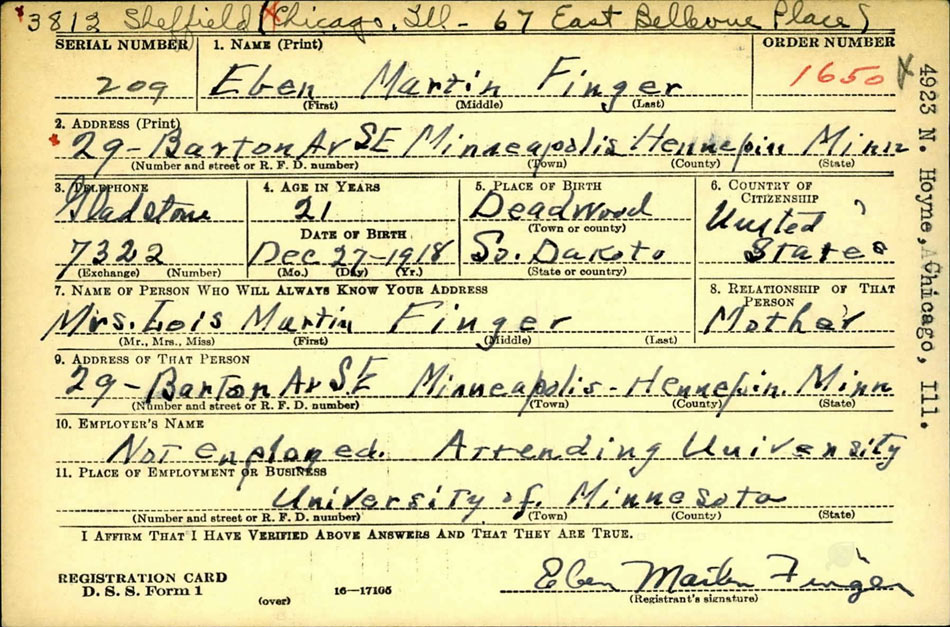 3812 Sheffield (Chicago, Ill - 67 East Bellevue Place)
SERIAL NUMBER 1. NAME (Print) ORDER NUMBER
209 Eben Martin Finger 1650
(First) (Middle) (Last)
2. ADDRESS (Print)
29 - Barton Av SE Minneapolis Hennepin Minn
(Number and street or R. F. D. number) (Town) (County) (State)
3. TELEPHONE 4. AGE IN YEARS 5. PLACE OF BIRTH 6. COUNTRY OF CITIZENSHIP
Gladstone 21 Deadwood United
(Town or county)
DATE OF BIRTH
7322 Dec 27-1918 So. Dakota States
(Exchange) (Number) (Mo.) (Day) (Yr.) (State or country)
7. NAME OF PERSON WHO WILL ALWAYS KNOW YOUR ADDRESS 8. RELATIONSHIP OF THAT PERSON
Mrs. Lois Martin Finger Mother
(Mr., Mrs., Miss) (First) (Middle) (Last)
9. ADDRESS OF THAT PERSON
29 - Barton Av S.E Minneapolis - Hennepin. Minn
(Number and street or R. F. D. number) (Town) (County) (State)
10. EMPLOYER'S NAME
Not employed. Attending University
11. PLACE OF EMPLOYMENT OR BUSINESS
University of. Minnesota
(Number and street or R. F. D. number) (Town) (County) (State)
I AFFIRM THAT I HAVE VERIFIED ABOVE ANSWERS AND THAT THEY ARE TRUE.
Eben Martin Finger
REGISTRATION CARD
D. S. S. Form 1 (over) 16—17105 (Registrant's signature)
4923 N. Hoyne, Chicago, Ill.